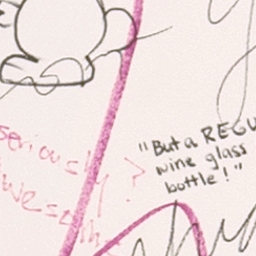 seriously
awesom
?
"But a REGU
wine glass
bottle!"